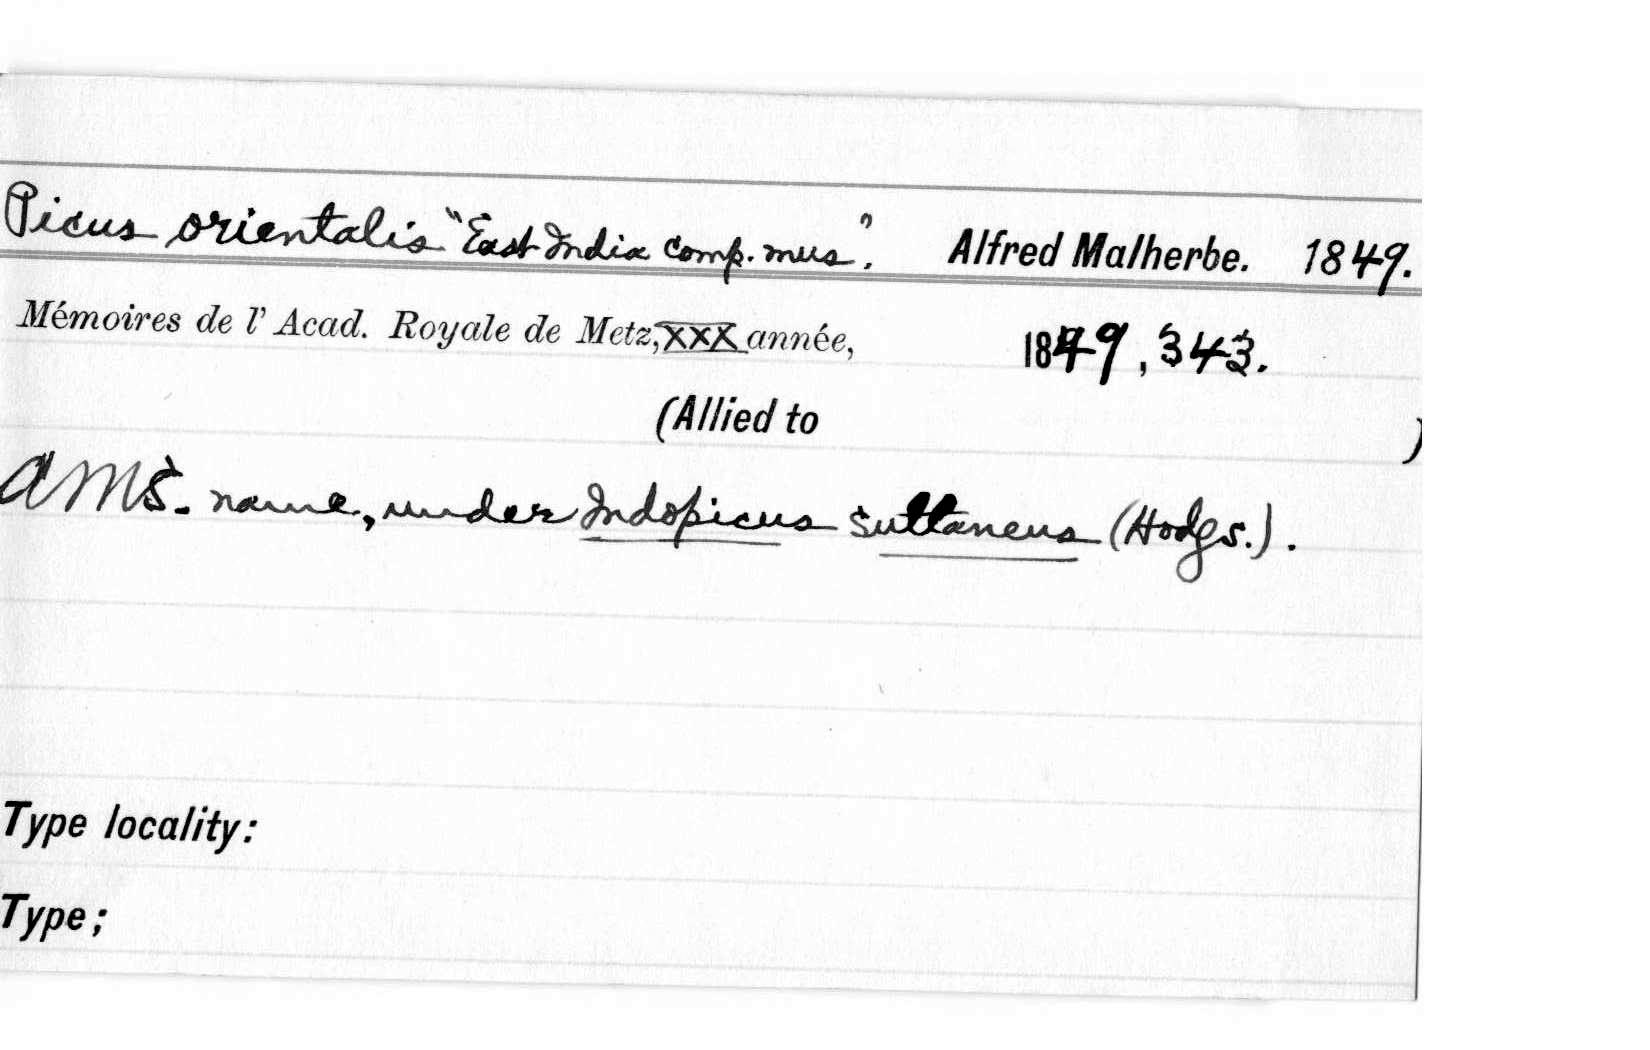 Picus orientalis "East India Comp. mus". Alfred Malherbe. 1849.
Mémoires de l' Acad. Royale de Metz, XXX année, 1849, 343.
(Allied to )
A MS. name, under Indopicus sultaneus (Hodgs.).
Type locality:
Type;